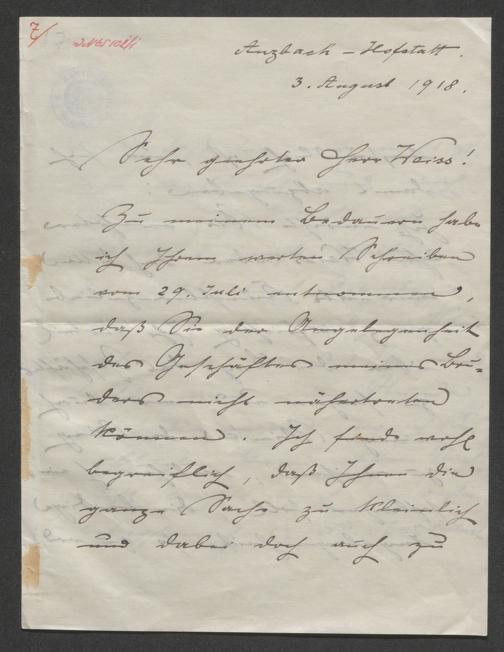 7/
Anzbach - Hofstatt.
3. August 1918.
Sehr geehrter Herr Weiss!
Zu meinem Bedauern habe
ich Ihrem werten Schreiben
vom 29. Juli entnommen,
daß Sie der Angelegenheit
des Geschäftes meines Bru-
ders nicht nähertreten
können. Ich finde wohl
begreiflich, daß Ihnen die
ganze Sache zu kleinlich
und dabei doch auch zu